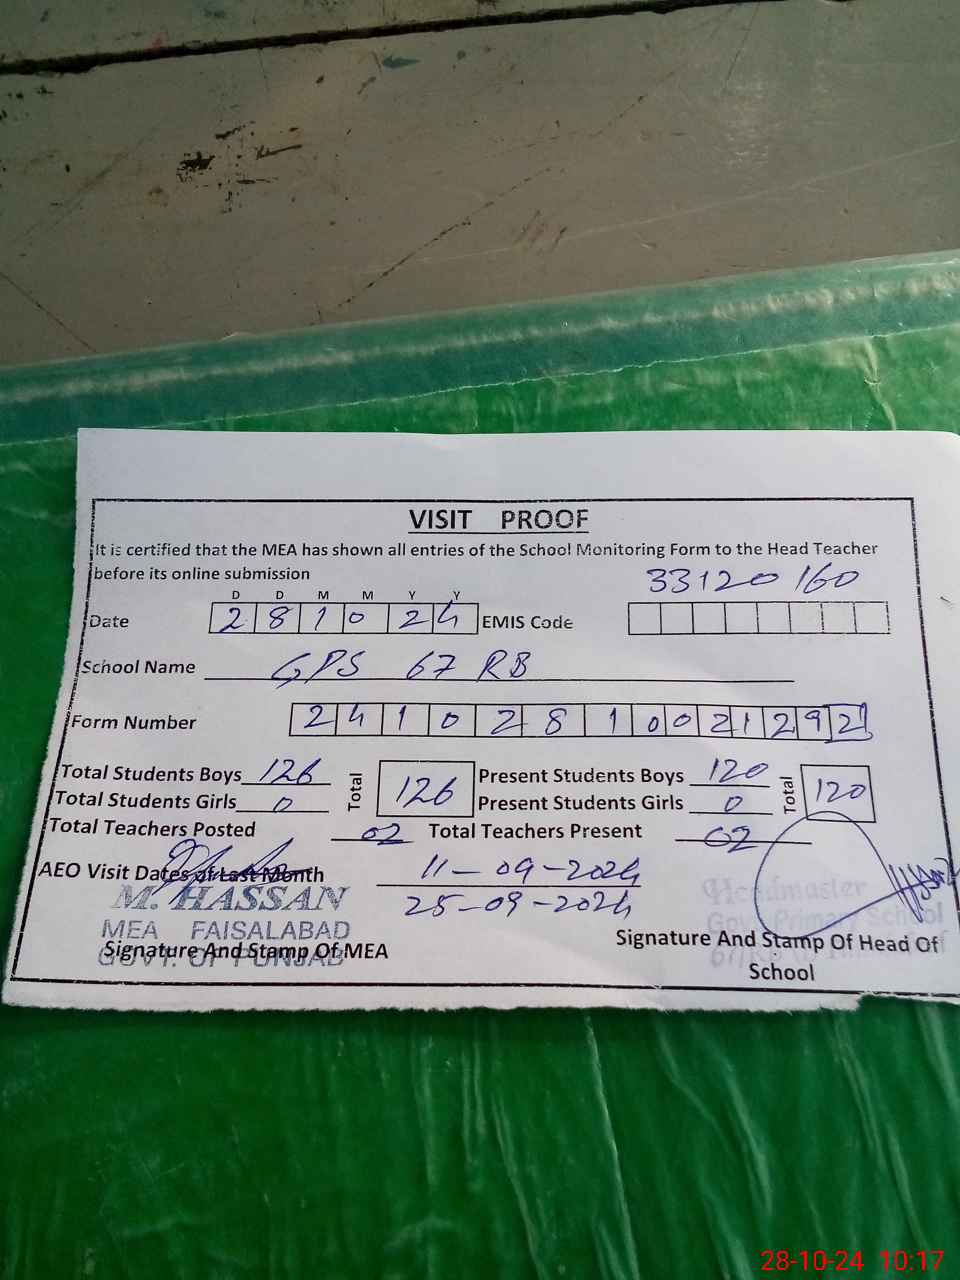 VISIT PROOF
It is certified that the MEA has shown all entries of the School Monitoring Form to the Head Teacher
before its online submission
33120160
D D M M Y Y
Date 2 8 1 0 2 4 EMIS Code
School Name GPS 67 RB
Form Number 2 4 1 0 2 8 1 0 0 2 1 2 9 2
Total Students Boys 126 Total 126 Present Students Boys 120 Total 120
Total Students Girls 0 Present Students Girls 0
Total Teachers Posted 02 Total Teachers Present 02
AEO Visit Dates of Last Month 11-09-2024
25-09-2024
M. HASSAN
MEA FAISALABAD
GOVT. OF PUNJAB
Signature And Stamp Of MEA
Headmaster
Govt Primary School
Signature And Stamp Of Head Of
School
28-10-24 10:17